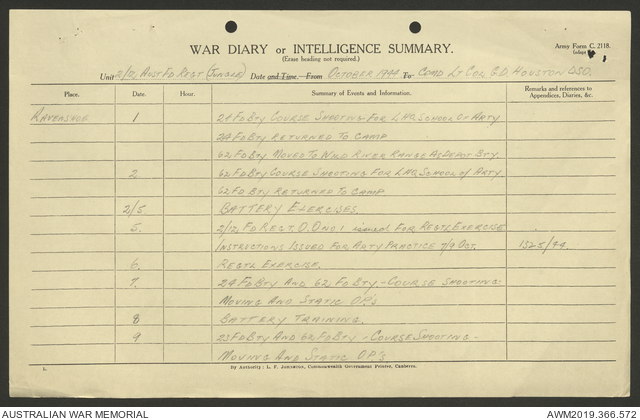 WAR DIARY or INTELLIGENCE SUMMARY.
(Erase heading not required.)
Army Form C. 2118.
Unit 2/12 AUST FD REGT (JUNGLE) Date and Time—From OCTOBER 1944 To COMD LT COL G.D. HOUSTON DSO.
Place. Date. Hour. Summary of Events and Information. Remarks and references to Appendices, Diaries, &c.
RAVENSHOE 1 24 FD BTY COURSE SHOOTING FOR LHQ SCHOOL OF ARTY
24 FD BTY RETURNED TO CAMP
62 FD BTY MOVED TO WILD RIVER RANGE AS DEPOT BTY.
2 62 FD BTY COURSE SHOOTING FOR LHQ SCHOOL OF ARTY.
62 FD BTY RETURNED TO CAMP.
2/5. BATTERY EXERCISES.
5. 2/12 FD REGT. O.O NO 1 issued FOR REGTL EXERCISE
INSTRUCTIONS ISSUED FOR ARTY PRACTICE 7/9 OCT. 1525/44.
6. REGTL EXERCISE.
7. 24 FD BTY AND 62 FD BTY - COURSE SHOOTING-
MOVING AND STATIC OP'S
8 BATTERY TRAINING.
9 23 FD BTY AND 62 FD BTY - COURSE SHOOTING -
MOVING AND STATIC OP'S.
By Authority: L. F. Johnston, Commonwealth Government Printer, Canberra.
AUSTRALIAN WAR MEMORIAL
AWM2019.366.572